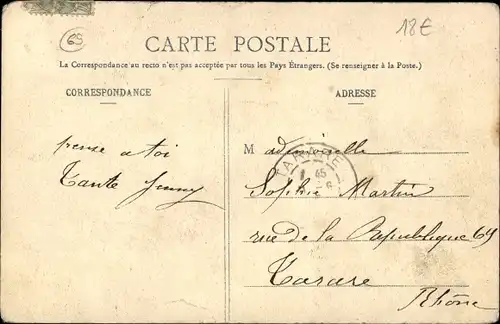 69
18€
CARTE POSTALE
La Correspondance au recto n'est pas acceptée par tous les Pays Étrangers. (Se renseigner à la Poste.)
CORRESPONDANCE
ADRESSE
pense a toi
Tante Jenny
Mademoiselle
TARARE
Sophie Martin
rue de la Republique 69
Tarare
Rhône